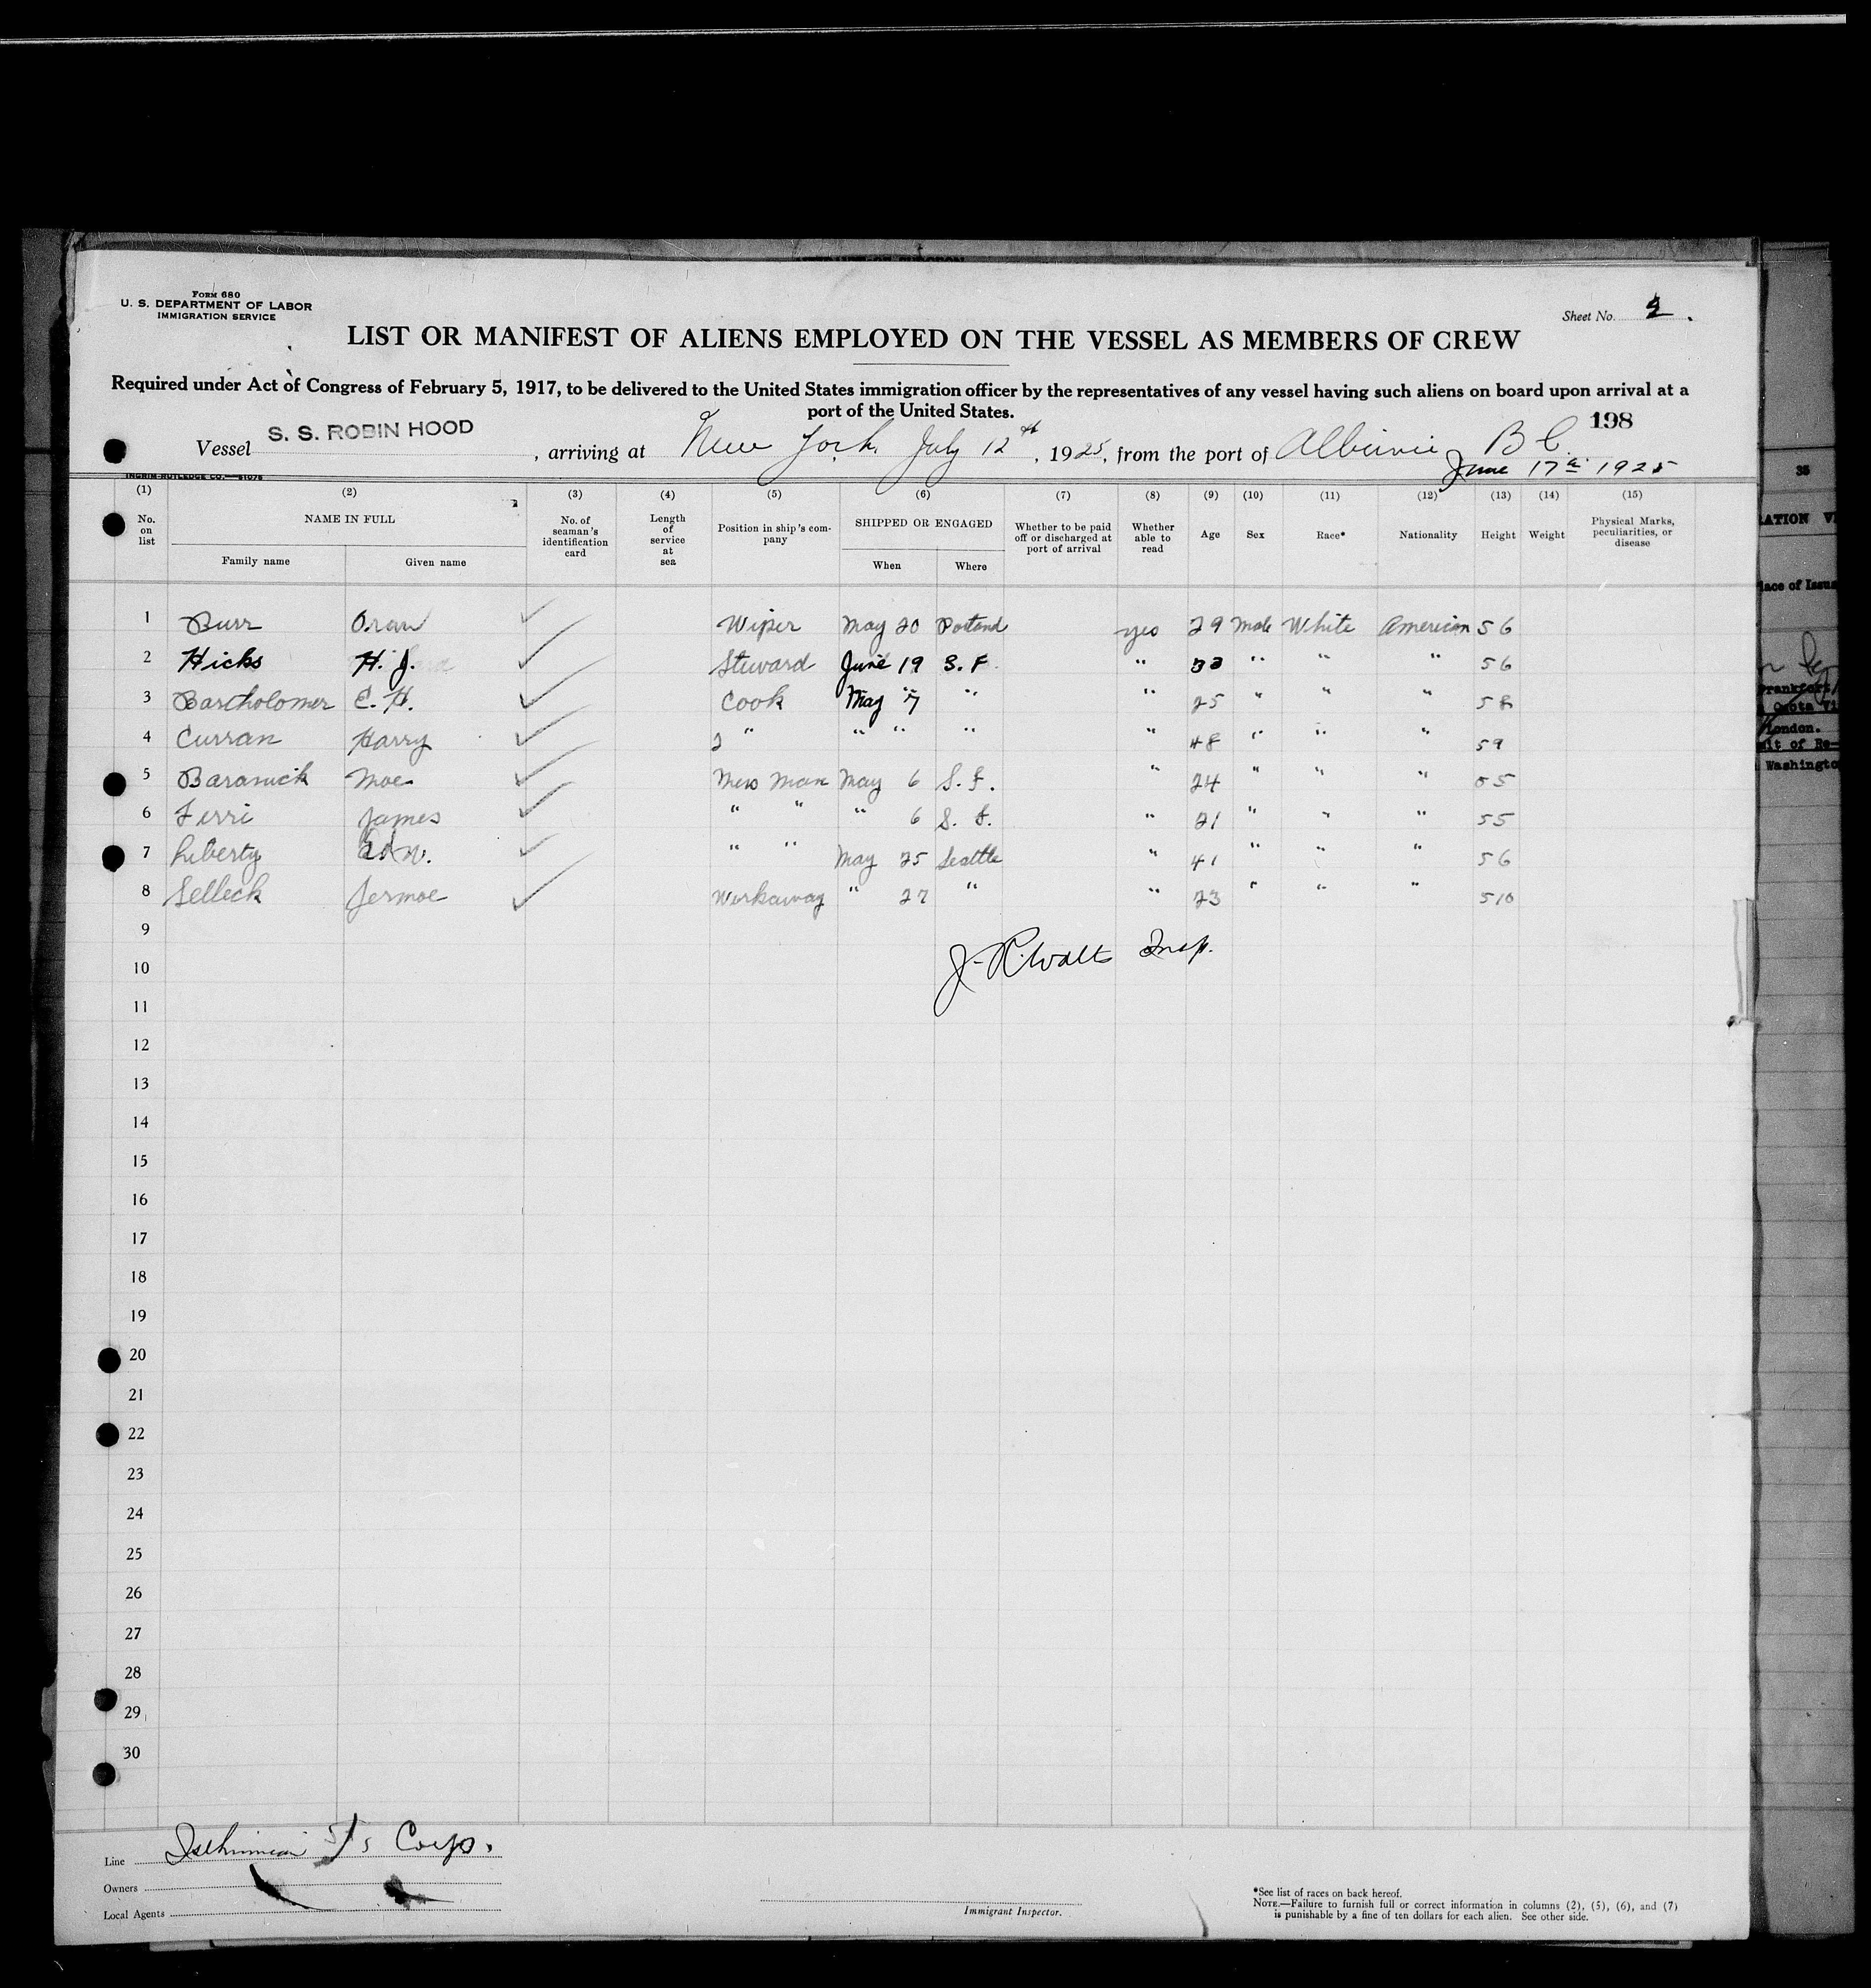 FORM 680
U. S. DEPARTMENT OF LABOR
IMMIGRATION SERVICE
Sheet No. 2.
LIST OR MANIFEST OF ALIENS EMPLOYED ON THE VESSEL AS MEMBERS OF CREW
Required under Act of Congress of February 5, 1917, to be delivered to the United States immigration officer by the representatives of any vessel having such aliens on board upon arrival at a
port of the United States.
198
Vessel S. S. ROBIN HOOD, arriving at New York July 12th, 1925, from the port of B C.
June 17th 1925
(1) (2) (3) (4) (5) (6) (7) (8) (9) (10) (11) (12) (13) (14) (15)
No. on list NAME IN FULL Family name Given name No. of seaman's identification card Length of service at sea Position in ship's company SHIPPED OR ENGAGED When Where Whether to be paid off or discharged at port of arrival Whether able to read Age Sex Race* Nationality Height Weight Physical Marks, peculiarities, or disease
1 Burr Oran Wiper May 20 Portand yes 29 Male White American 56
2 Hicks H. J. Steward June 19 S. F. " " " " 56
3 Bartholomer E. H. Cook May 7 " " 25 " " " 58
4 Curran Harry 2 " " " " " 48 " " " 59
5 Baranick Moe Mess Man May 6 S. F. " 24 " " "
6 Ferri James " " " 6 S. F. " 21 " " " 55
7 Liberty " " May 25 Seattle " 41 " " " 56
8 Selleck Jermoe Workaway " 27 " " 23 " " " 510
9
J. R. Watts Insp.
10
11
12
13
14
15
16
17
18
19
20
21
22
23
24
25
26
27
28
29
30
Line S/S Corp.
Owners
Local Agents
Immigrant Inspector.
*See list of races on back hereof.
NOTE.—Failure to furnish full or correct information in columns (2), (5), (6), and (7)
is punishable by a fine of ten dollars for each alien. See other side.